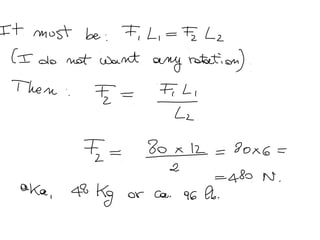 It must be: F₁ L₁ = F₂ L₂
(I do not want any rotation).
Then: F₂ = F₁ L₁ / L₂
F₂ = 80 x 12 / 2 = 80x6 =
= 480 N.
aka, 48 Kg or ca. 96 lb.